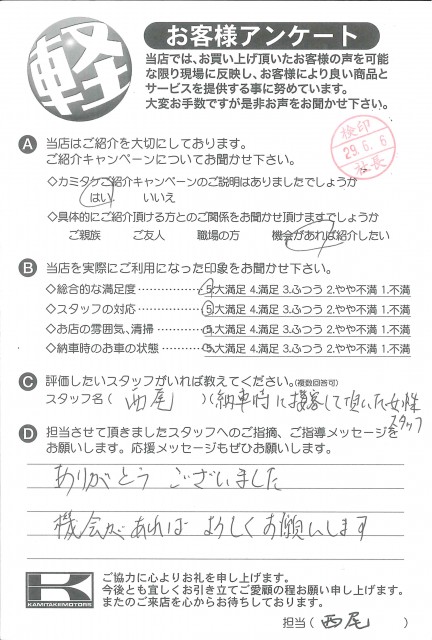 軽
お客様アンケート
当店では、お買い上げ頂いたお客様の声を可能
な限り現場に反映し、お客様により良い商品と
サービスを提供する事に努めています。
大変お手数ですが是非お声をお聞かせ下さい。
検印
29.6.6
社長
A 当店はご紹介を大切にしております。
ご紹介キャンペーンについてお聞かせ下さい。
◇カミタケご紹介キャンペーンのご説明はありましたでしょうか
はい いいえ
◇具体的にご紹介頂ける方とのご関係をお聞かせ頂けますでしょうか
ご親族 ご友人 職場の方 機会があれば紹介したい
B 当店を実際にご利用になった印象をお聞かせ下さい。
◇総合的な満足度……………5.大満足 4.満足 3.ふつう 2.やや不満 1.不満
◇スタッフの対応……………5.大満足 4.満足 3.ふつう 2.やや不満 1.不満
◇お店の雰囲気、清掃………5.大満足 4.満足 3.ふつう 2.やや不満 1.不満
◇納車時のお車の状態………5.大満足 4.満足 3.ふつう 2.やや不満 1.不満
C 評価したいスタッフがいれば教えてください。(複数回答可)
スタッフ名(西尾)(納車時に接客して頂いた女性
スタッフ
D 担当させて頂きましたスタッフへのご指摘、ご指導メッセージを
お願いします。応援メッセージもぜひお願いします。
ありがとうございました
機会があれば よろしくお願いします
K
KAMITAKEMOTORS
ご協力に心よりお礼を申し上げます。
今後とも宜しくお引き立てご愛顧の程お願い申し上げます。
またのご来店を心からお待ちしております。
担当(西尾)